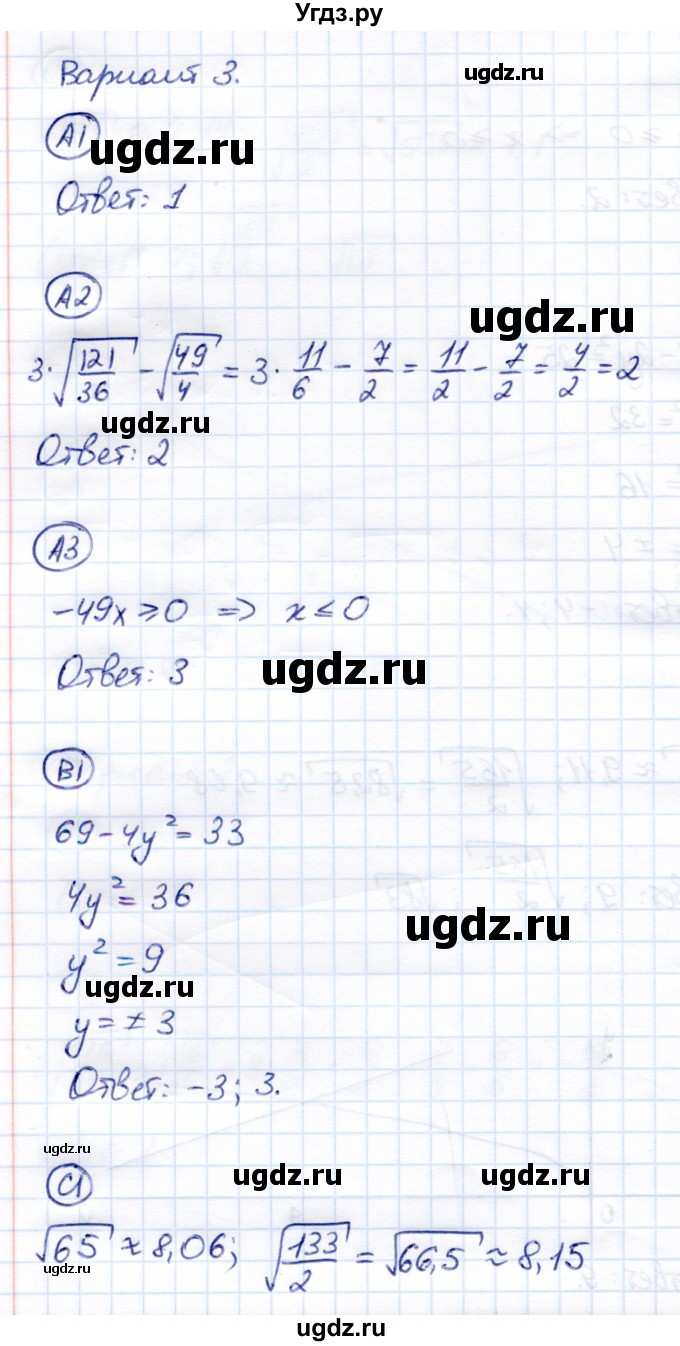 Угдз.ру
Вариант 3.
ugdz.ru
А1
ugdz.ru
Ответ: 1
А2
ugdz.ru
3·√(121/36) - √(49/4) = 3·11/6 - 7/2 = 11/2 - 7/2 = 4/2 = 2
ugdz.ru
Ответ: 2
А3
-49x ≥ 0 => x ≤ 0
ugdz.ru
Ответ: 3
В1
69 - 4y² = 33
4y² = 36
ugdz.ru
y² = 9
ugdz.ru
y = ± 3
Ответ: -3; 3.
ugdz.ru
С1
ugdz.ru
ugdz.ru
√65 ≈ 8,06; √(133/2) = √66,5 ≈ 8,15
ugdz.ru
ugdz.ru
ugdz.ru